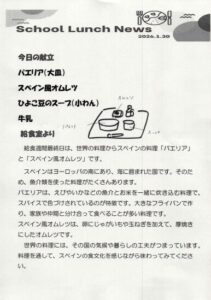 School Lunch News
2026.1.30
今日の献立
パエリア(大皿)
スペイン風オムレツ
ひよこ豆のスープ(小わん)
牛乳
給食室より
給食週間最終日は、世界の料理からスペインの料理「パエリア」
と「スペイン風オムレツ」です。
スペインはヨーロッパの南にあり、海に囲まれた国です。そのた
め、魚介類を使った料理がたくさんあります。
パエリアは、えびやいかなどの魚介とお米を一緒に炊き込む料理で、
スパイスで色づけされているのが特徴です。大きなフライパンで作
り、家族や仲間と分け合って食べることが多い料理です。
スペイン風オムレツは、卵にじゃがいもや玉ねぎを加えて、厚焼き
にしたオムレツです。
世界の料理には、その国の気候や暮らしの工夫がつまっています。
料理を通して、スペインの食文化を感じながら味わってみてくださ
い。